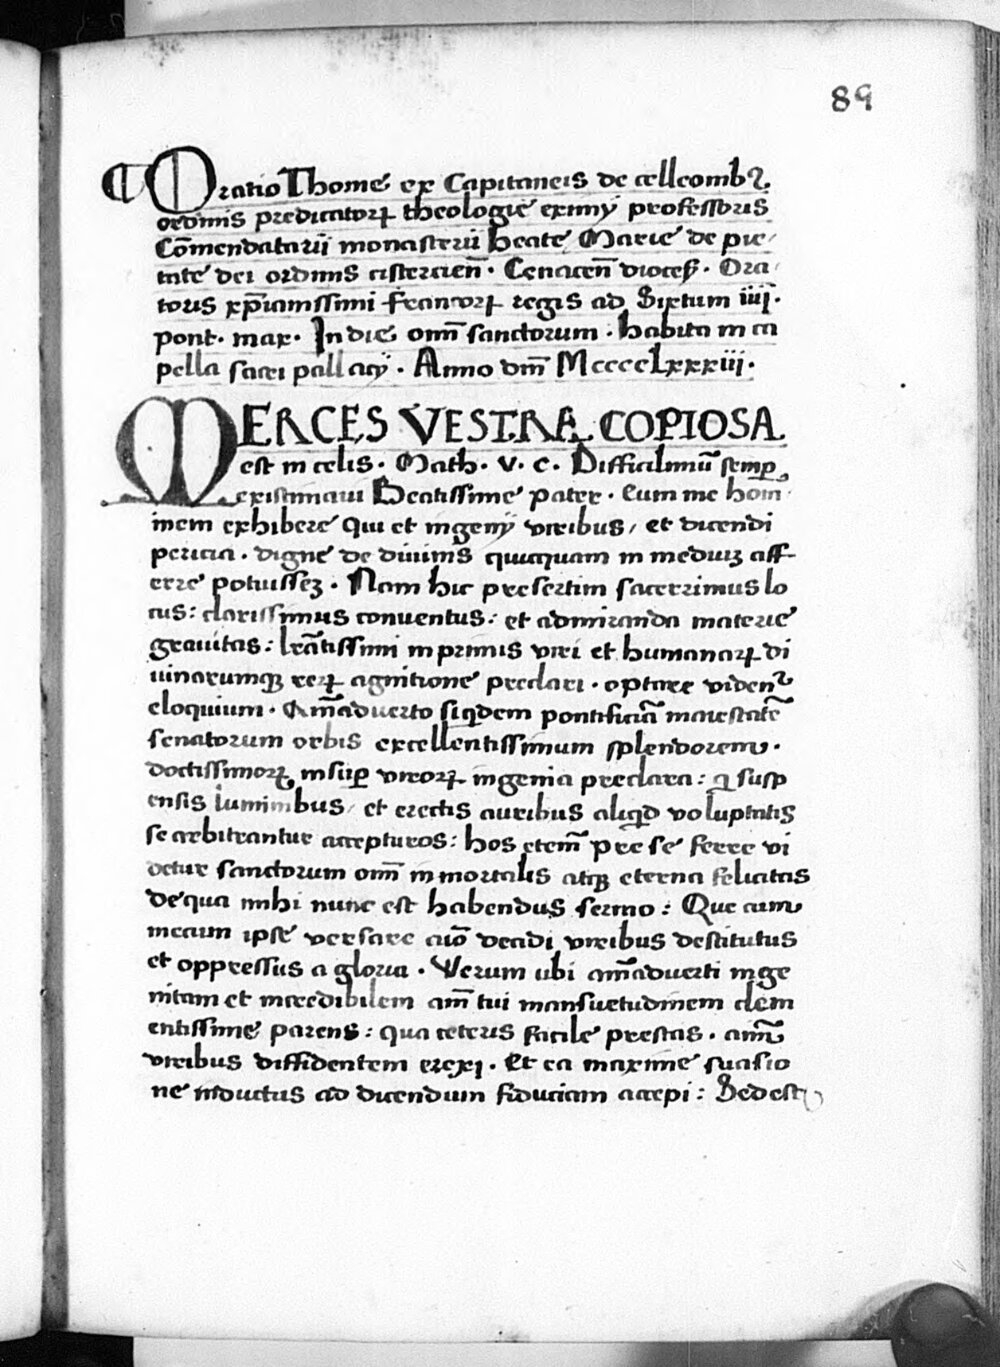 89
Oratio Thome ex Capitaneis de cellcombꝰ.
ordinis predicatorꝝ theologie eximij professoris
Cōmendatarii monasterii beate Marie de pie/
tate dei ordinis cistercien̄. Cenacen̄ dioceſ. Ora/
toris xp̄ianissimi francorꝝ regis ad Sixtum iiij.
pont. max. In die om̄i sanctorum. habita in ca
pella sacri pallacij. Anno dn̄i MccccLxxxiii.
MERCES VESTRA COPIOSA
est in celis. Math. v. c. Difficilimū semꝑ
existimaui Beatissime pater. Cum me homi/
inem exhibere qui et ingenij viribus, et dicendi
pericia. digne de diuinis quicquam in mediuꝫ aff
erre potuisseꝫ. Nam hic presertim sacerrimus lo
cus: clarissimus conuentus: et admiranda materie
grauitas: lr̄atissimi inprimis viri et humanarꝝ di
iuinarumqꝫ rerꝝ agnitione preclari. optare videnᷣ
eloquium. Am̄aduerto siqdem pontificiā maiestatē
senatorum orbis excellentissimum splendorem.
doctissimorꝝ insuꝑ virorꝝ ingenia preclara: q susp
ensis luminibus, et erectis auribus aliqd voluptatis
se arbitrantur accepturos: hos etem̄ pre se ferre vi
detur sanctorum om̄i inmortalis atqꝫ eterna felicitas
de qua mihi nunc est habendus sermo: Que cum
mecum ipse versare aīo decidi viribus destitutus
et oppressus a gloria. Verum ubi am̄aduerti inge
nitam et incredibilem am̄i tui mansuetudinem clem
entissime parens: qua ceteris facile prestas. am̄ū
viribus diffidentem erexi. Et ea maxime suasio
ne inductus ad dicendum fiduciam accepi: Sed est